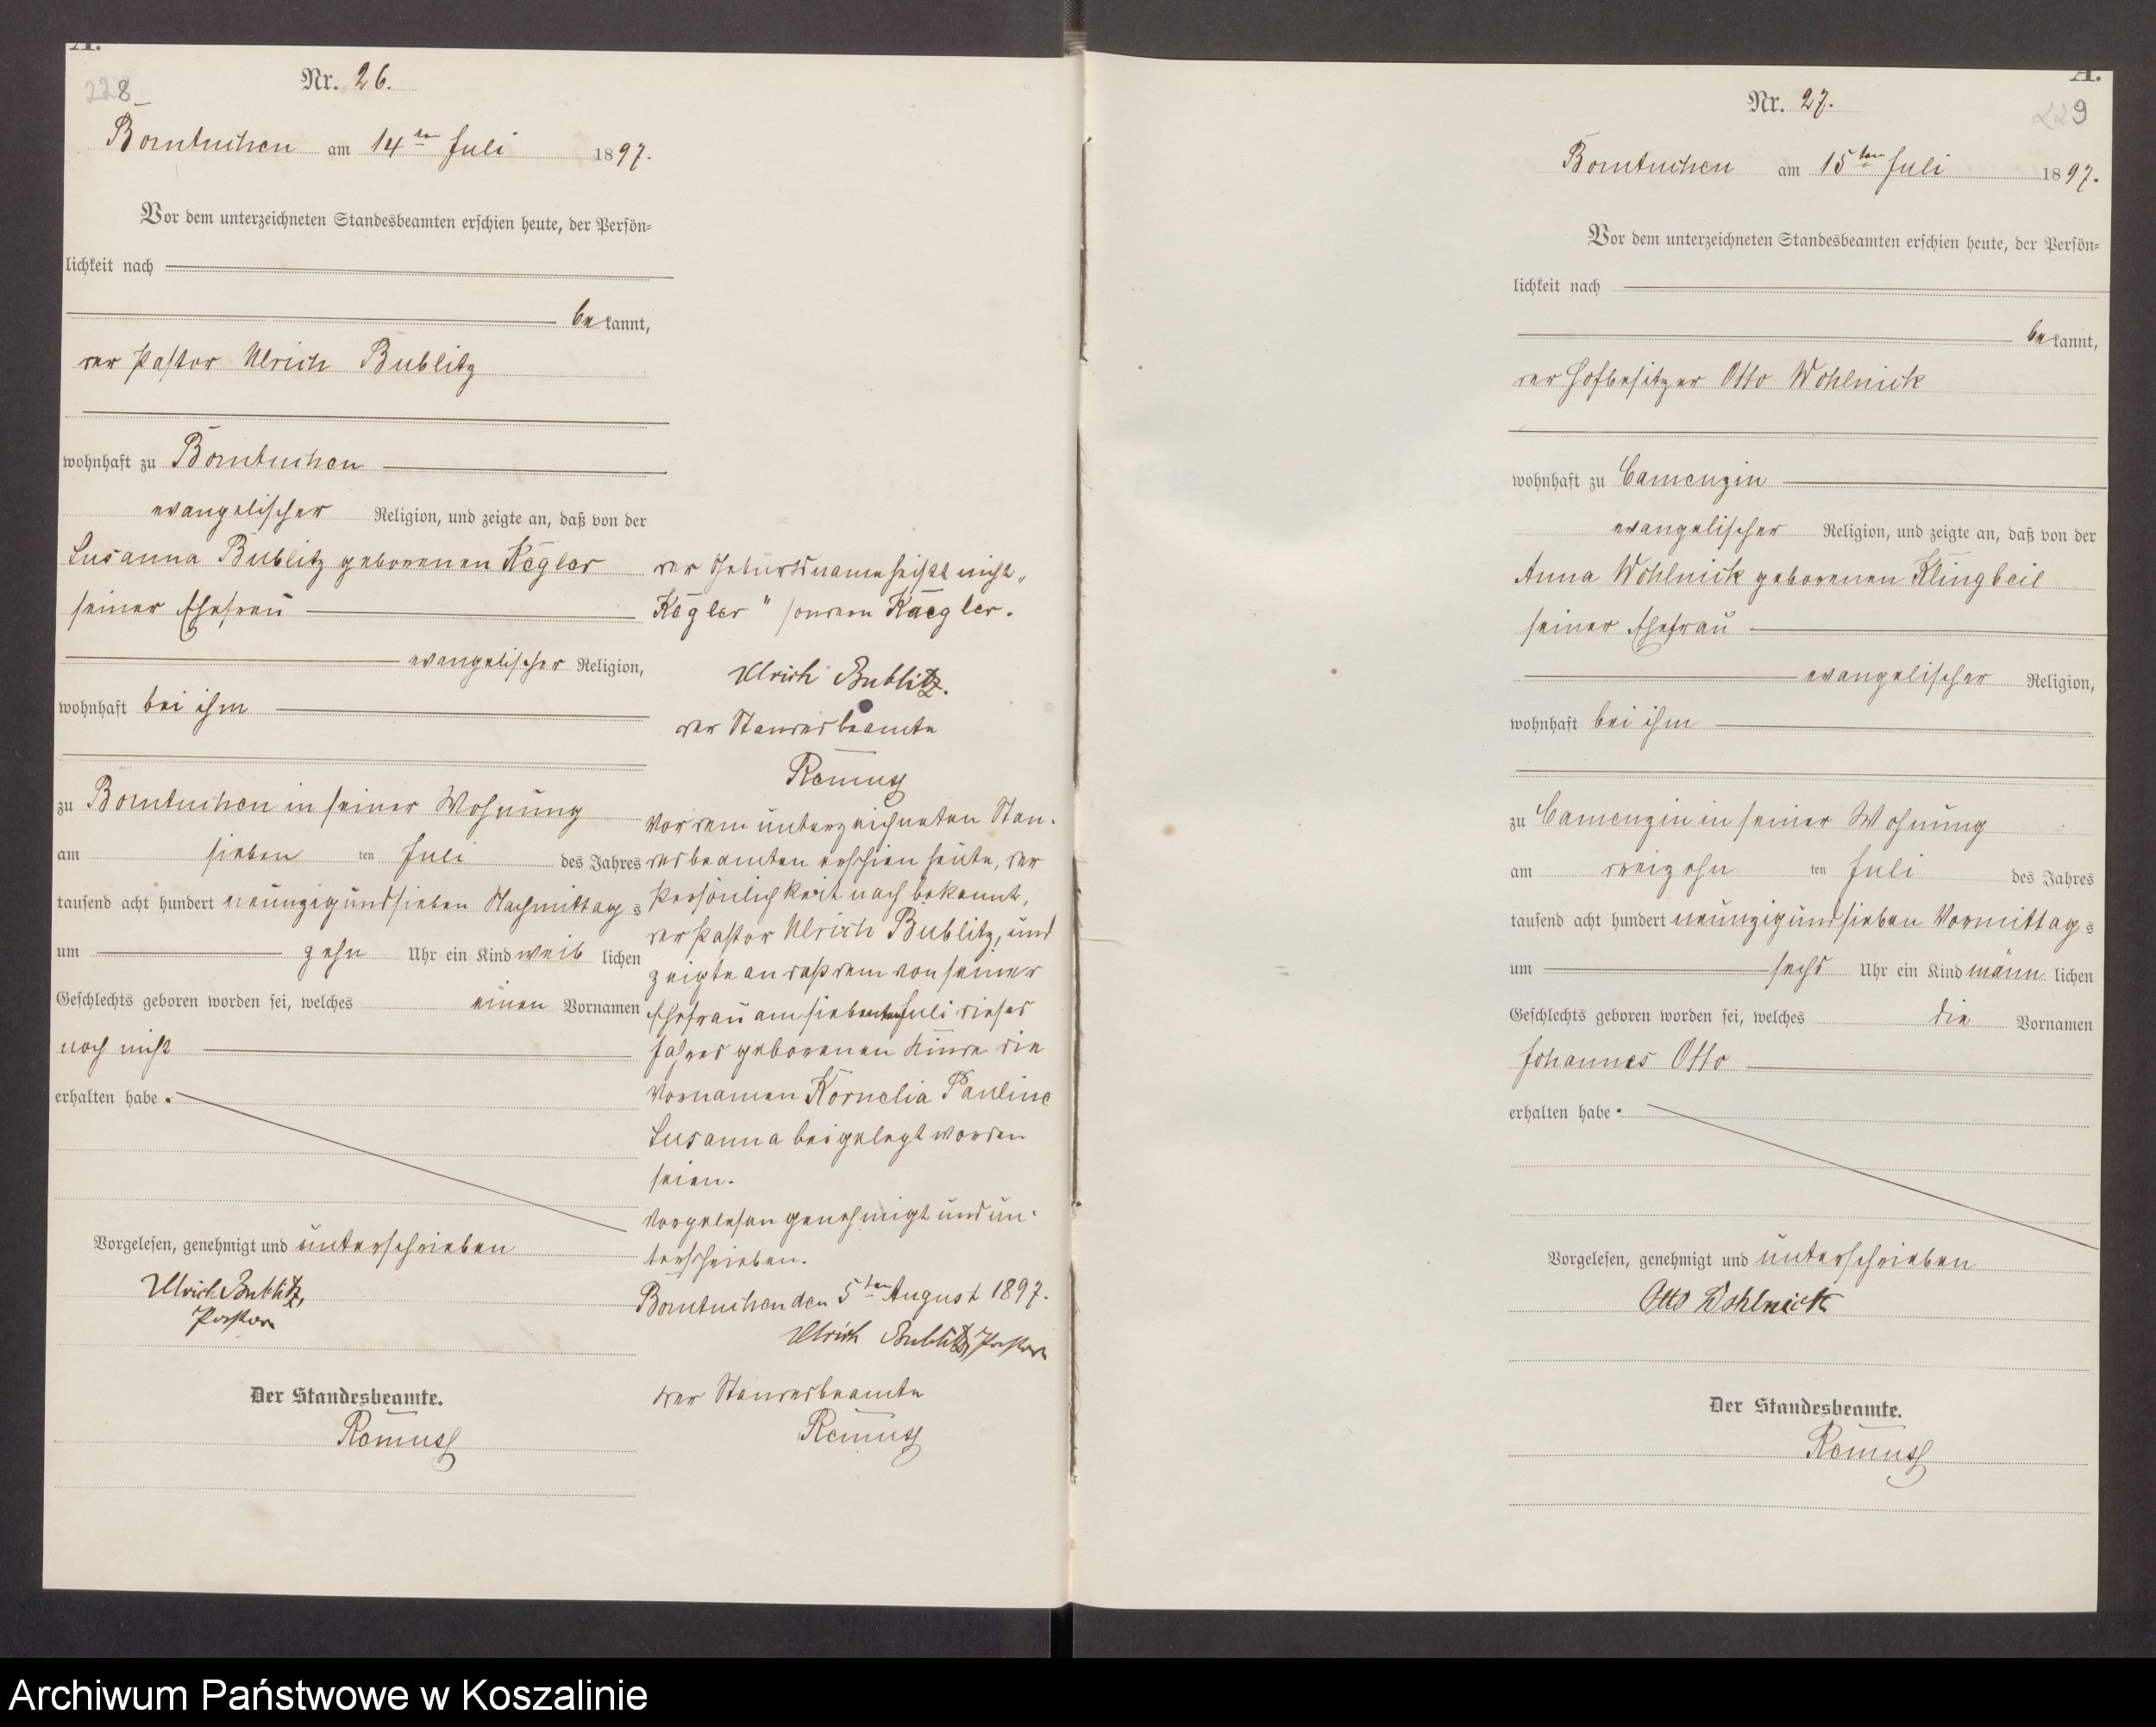 A.
228
Nr. 26.
Borntuchen am 14ten Juli 1897.
Vor dem unterzeichneten Standesbeamten erschien heute, der Persön-
lichkeit nach
bekannt,
der Pastor Ulrich Bublitz
wohnhaft zu Borntuchen
evangelischer Religion, und zeigte an, daß von der
Susanna Bublitz geborenen Kegler
seiner Ehefrau
evangelischer Religion,
wohnhaft bei ihm
zu Borntuchen in seiner Wohnung
am sieben ten Juli des Jahres
tausend acht hundert neunzig und sieben Nachmittags
um zehn Uhr ein Kind weiblichen
Geschlechts geboren worden sei, welches einen Vornamen
noch nicht
erhalten habe.
Vorgelesen, genehmigt und unterschrieben
Ulrich Bublitz,
Pastor
Der Standesbeamte.
Remus
der Geburtsname heißt nicht „
Kegler" sondern Kaegler.
Ulrich Bublitz.
der Standesbeamte
Remus
Vor dem unterzeichneten Stan-
desbeamten erschien heute, der
Persönlichkeit nach bekannt,
der Pastor Ulrich Bublitz, und
zeigte an daß dem von seiner
Ehefrau am siebenten Juli dieses
Jahres geborenen Kinde die
Vornamen Kornelia Pauline
Susanna beigelegt worden
seien.
Vorgelesen genehmigt und un-
terschrieben.
Borntuchen den 5ten August 1897.
Ulrich Bublitz, Pastor
der Standesbeamte
Remus
A.
229
Nr. 27.
Borntuchen am 15ten Juli 1897.
Vor dem unterzeichneten Standesbeamten erschien heute, der Persön-
lichkeit nach
bekannt,
der Hofbesitzer Otto Wohlnick
wohnhaft zu Camenzin
evangelischer Religion, und zeigte an, daß von der
Anna Wohlnick geborenen Klingbeil
seiner Ehefrau
evangelischer Religion,
wohnhaft bei ihm
zu Camenzin in seiner Wohnung
am dreizehn ten Juli des Jahres
tausend acht hundert neunzig und sieben Vormittags
um sechs Uhr ein Kind männlichen
Geschlechts geboren worden sei, welches die Vornamen
Johannes Otto
erhalten habe.
Vorgelesen, genehmigt und unterschrieben
Otto Wohlnick
Der Standesbeamte.
Remus
Archiwum Państwowe w Koszalinie